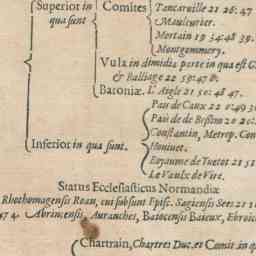 Superior in qua sunt
Comites
Tancaruille 21 26: 47
Mauleurier.
Mortain 19 34: 48 39.
Montgommery.
Vula in dimidia parte in qua est C
& Balliage 22 59: 47 8:
Baroniæ. L' Aigle 21 50: 48 47.
Inferior in qua sunt.
Pais de Caux 22 0: 49 3
Pais de
Constantin, Metrop. Con
Royaume de Yuetot 21 51
Le Vaulx de Vire.
Status Ecclesiasticus Normandiæ
Rhothomagensis Roan, cui subsunt Episc. Sagiensis Sees 21 1
47 4. Abrincensis, Auranches, Baiocensis Baieux, Ebroic
Chartrain, Chartres Duc. et Comit in q